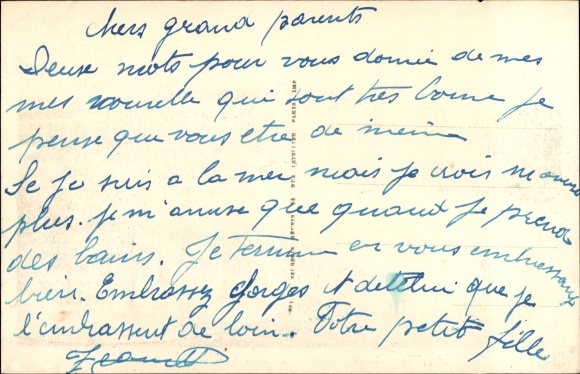 chers grand parents
Deuse mots pour vous donné de mes
mes nouvelle qui sont tres bonne je
pense que vous etre de meme
Se je suis a la mer mais je crois m amuse
plus. je m'amuse que quant je prend
des bains. Je termine en vous embrassant
bien. Embrassez Gorges et dite lui que je
l'embrassent de loin. Votre petit fille